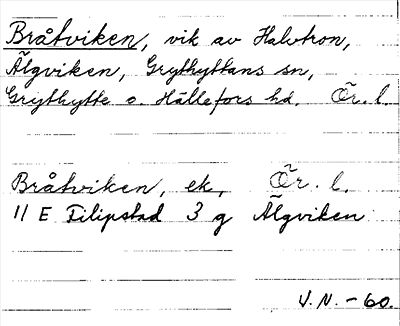 Bråtviken, vik av Halvtron,
Älgviken, Grythyttans sn,
Grythytte o. Hällefors hd. Ör. l.
Bråtviken, ek, Ör. l.
11 E Filipstad 3 g Älgviken
V.N. -60.